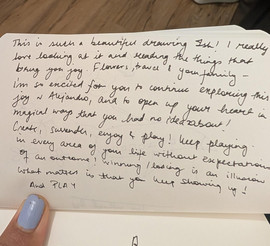 This is such a beautiful drawing Esh! I really
love looking at it and reading the things that
bring you joy. Flowers, travel & your family -
Im so excited for you to continue exploring this
joy w Alejandro, and to open up your heart in
magical ways that you had no idea about!
Create, surrender, enjoy & play! Keep playing.
In every area of your life without expectation
of an outcome! Winning/losing is an illusion
What matters is that you keep showing up!
And PLAY